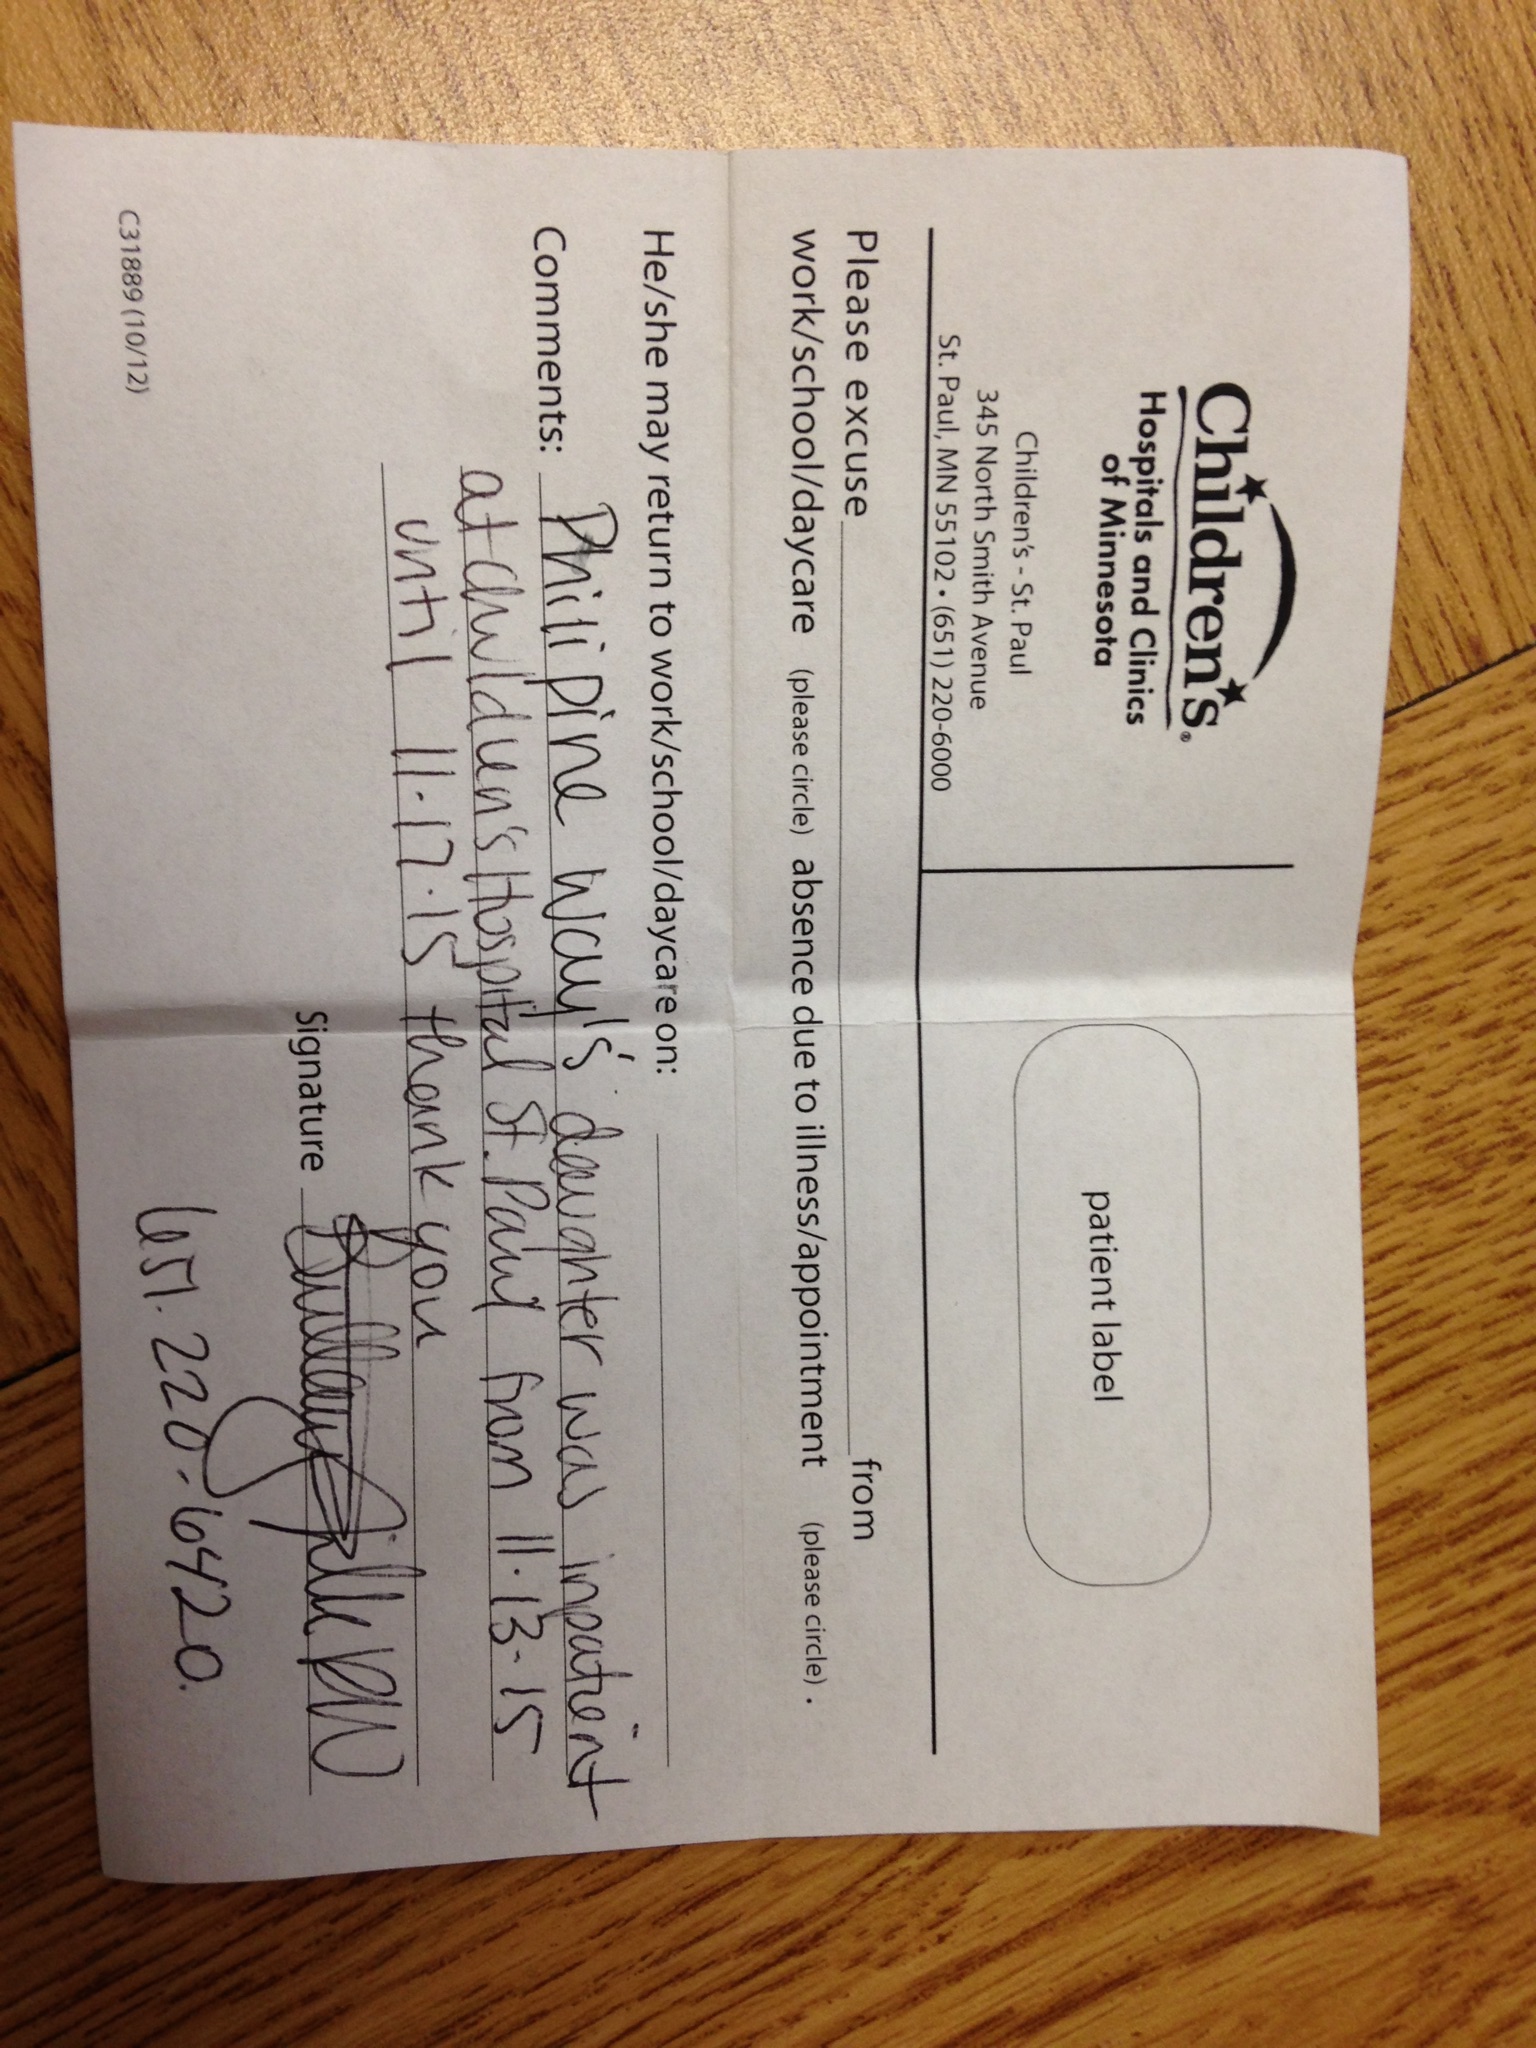 Children's®
Hospitals and Clinics
of Minnesota
Children's - St. Paul
345 North Smith Avenue
St. Paul, MN 55102 • (651) 220-6000
patient label
Please excuse from
work/school/daycare (please circle) absence due to illness/appointment (please circle).
He/she may return to work/school/daycare on:
Comments: Philipine Way's daughter was inpatient
at Children's Hospital St. Paul from 11.13.15
until 11.17.15 thank you
Signature RN
651.220.6420.
C31889 (10/12)